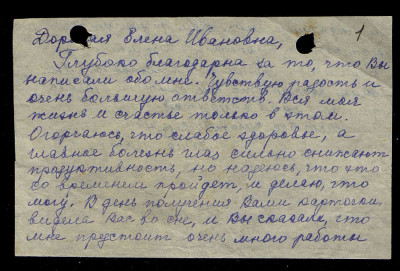 Дорогая Елена Ивановна, 1
Глубоко благодарна за то, что Вы
написали обо мне. Чувствую радость и
очень большую ответств. Вся моя
жизнь и счастье только в этом.
Огорчаюсь, что слабое здоровье, а
главное болезнь глаз сильно снижают
продуктивность, но надеюсь, что это
со временем пройдет, и делаю, что
могу. В день получения Вами карточки
видела Вас во сне, и Вы сказали, что
мне предстоит очень много работы